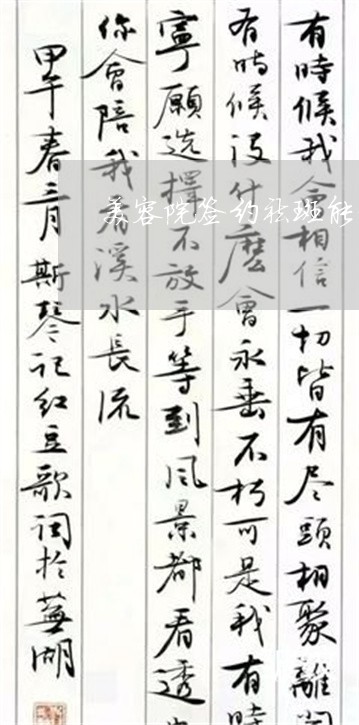 有時候我会相信一切皆有尽頭相聚離開
有時候没什麽會永垂不朽可是我有時
寧願选擇不放手等到风景都看透
你會陪我看溪水長流
甲午春三月斯琴记红豆歌词於蕪湖
美容院签约祛斑能